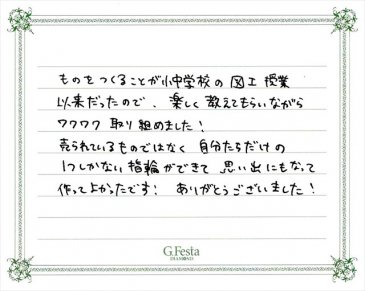 ものをつくることが小中学校の図工授業
以来だったので、楽しく教えてもらいながら
ワクワク取り組めました！
売られているものではなく自分たちだけの
1つしかない指輪ができて思い出にもなって
作ってよかったです！ありがとうございました！
G.Festa
DIAMOND